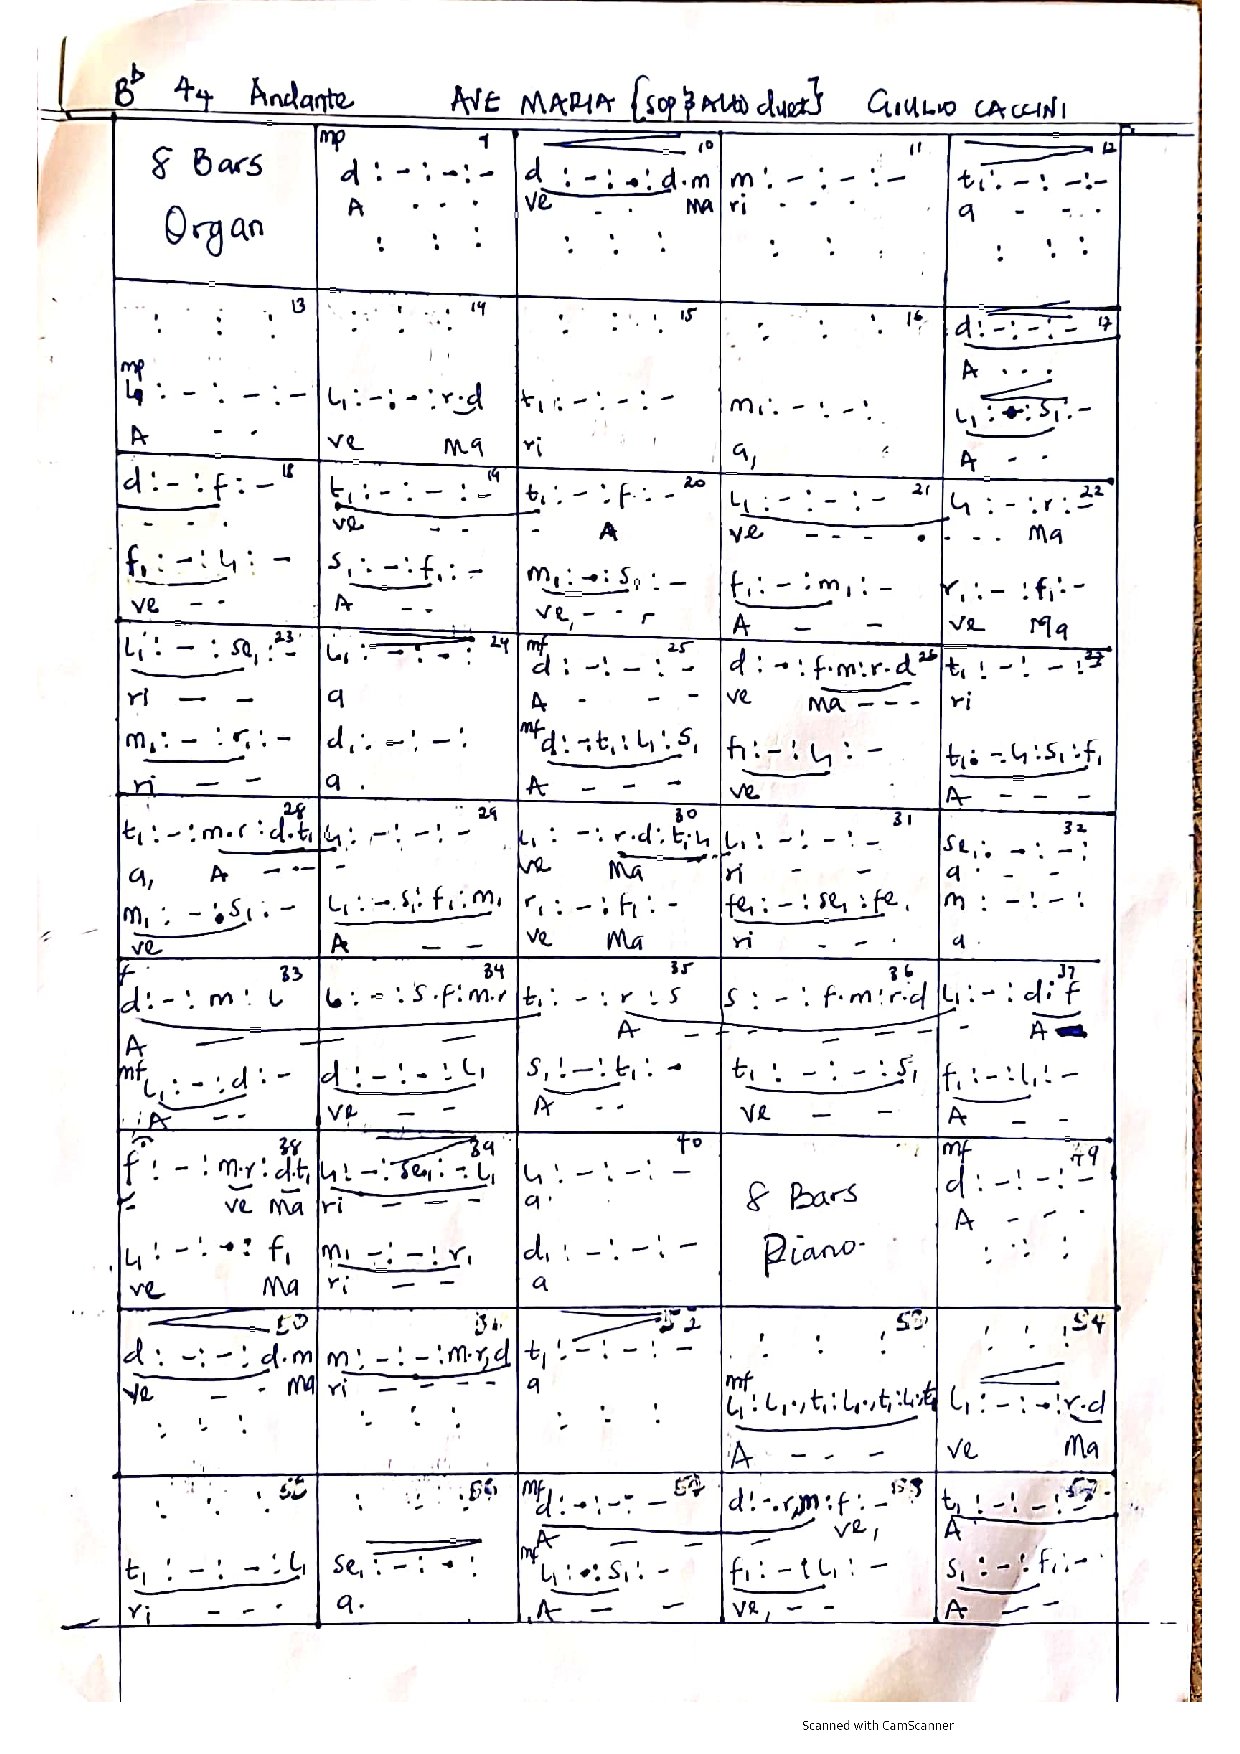 B♭ 44 Andante AVE MARIA [SOP & ALTO duet] GIULIO CACCINI
8 Bars Organ
mp 9
d : - : - : -
A . . .
: : :
10
d : - : - : d.m
ve . . Ma
: : :
11
m : - : - : -
ri . . .
: : :
12
t₁ : - : - : -
a - - . .
: : :
: : : 13
mp
l₁ : - : - : -
A - -
: : : 14
l₁ : - : - : r.d
ve Ma
: : : 15
t₁ : - : - : -
ri
: : : 16
m₁ : - : - :
a,
d : - : - : - 17
A . . .
l₁ : - : s₁ : -
A - -
d : - : f : - 18
- - .
f₁ : - : l₁ : -
ve - -
t₁ : - : - : - 19
ve - -
s₁ : - : f₁ : -
A - -
t₁ : - : f : - 20
- A
m₁ : - : s₁ : -
ve, - - -
l₁ : - : - : - 21
ve - - - .
f₁ : - : m₁ : -
A - -
l₁ : - : r : - 22
- - - Ma
r₁ : - : f₁ : -
ve Ma
l₁ : - : se₁ : - 23
ri - -
m₁ : - : r₁ : -
ri - -
l₁ : - : - : 24
a
d₁ : - : - :
a .
mf 25
d : - : - : -
A - - -
mf d : - t₁ : l₁ : s₁
A - - -
d : - : f.m : r.d 26
ve Ma - - -
f₁ : - : l₁ : -
ve
t₁ : - : - : 27
ri
t₁ . - l₁ : s₁ : f₁
A - - -
28
t₁ : - : m.r : d.t₁
a, A - - -
m₁ : - : s₁ : -
ve
l₁ : - : - : - 29
-
l₁ : - s₁ : f₁ : m₁
A - -
30
l₁ : - : r.d : t₁.l₁
ve Ma
r₁ : - : f₁ : -
ve Ma
31
l₁ : - : - : -
ri - -
fe₁ : - : se₁ : fe₁
ri - - -
32
se₁ : - : - :
a . - -
m : - : - :
a .
f 33
d : - : m : l
A - - -
mf l₁ : - : d : -
A - -
34
l : - : s.f : m.r
- -
d : - : - : l₁
ve - -
35
t₁ : - : r : s
A - -
s₁ : - : t₁ : -
A - -
36
s : - : f.m : r.d
- - - -
t₁ : - : - : s₁
ve - -
37
l₁ : - : d : f
- A
f₁ : - : l₁ : -
A - -
38
f : - : m.r : d.t₁
- ve Ma
l₁ : - : - : f₁
ve Ma
39
l₁ : - : se₁ : - l₁
ri - - -
m₁ - : - : r₁
ri - -
40
l₁ : - : - : -
a .
d₁ : - : - : -
a
8 Bars Piano.
mf 49
d : - : - : -
A - - .
: : :
50
d : - : - : d.m
ve - . Ma
: : :
m : - : - : m.r,d
ri - - - -
52
t₁ : - : - : -
a
: : :
: : : 53
mf
l₁ : l₁.,t₁ : l₁.,t₁ : l₁.t₁
A - - -
: : : 54
l₁ : - : - : r.d
ve Ma
: : : 55
t₁ : - : - : l₁
ri - - -
: : :
se₁ : - : - :
a .
mf
d : - : - : -
A - -
mf l₁ : - : s₁ : -
A - -
d : - . r,m : f : -
ve,
f₁ : - : l₁ : -
ve, - -
t₁ : - : - : -
A
s₁ : - : f₁ : -
A - -
Scanned with CamScanner